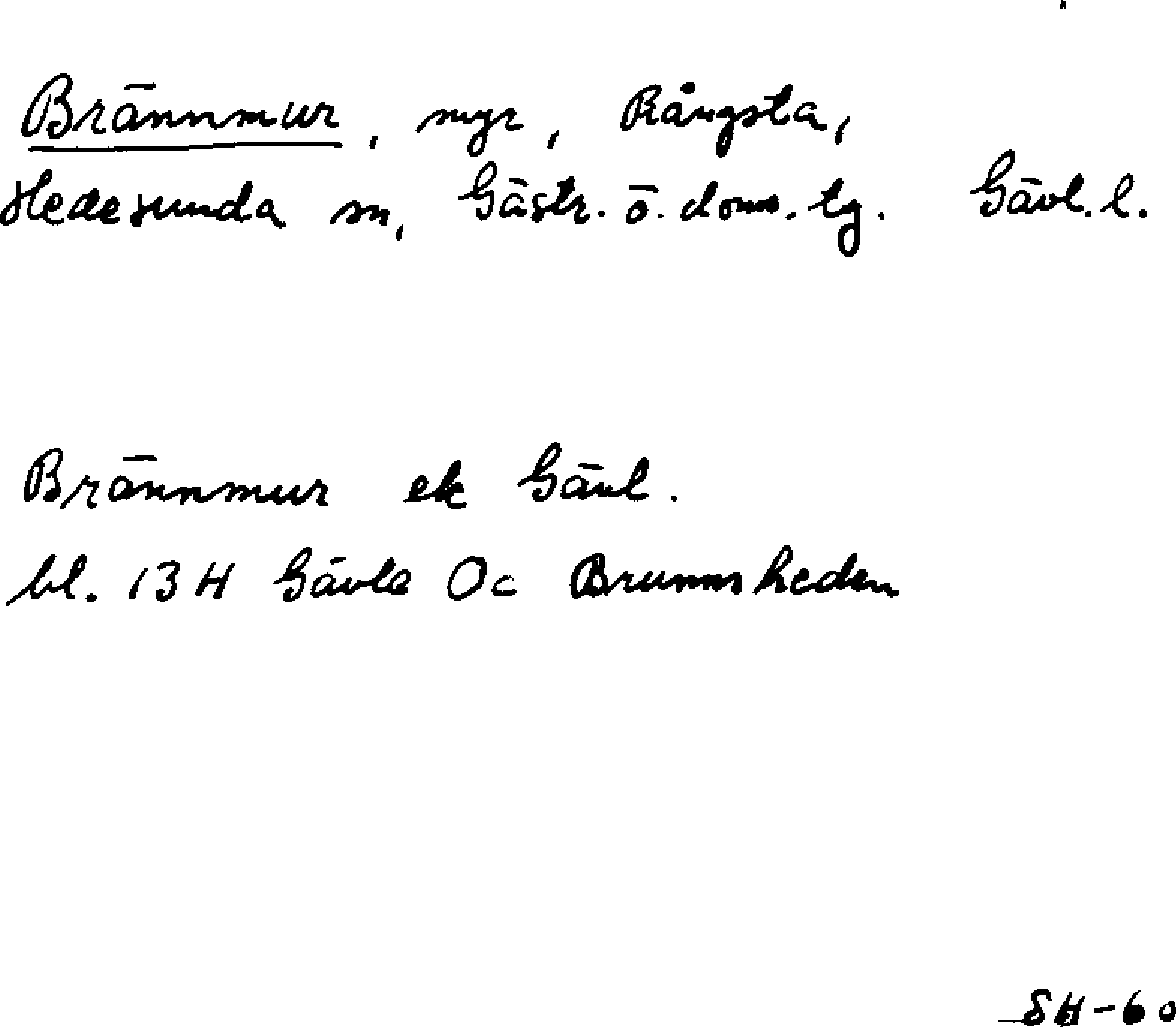 Brännmur, myr, Rångsta,
Hedesunda sn, Gästr. ö. doms. lg. Gävl. l.
Brännmur ek Gävl.
bl. 13 H Gävle Oc Brunnsheden
SH-60